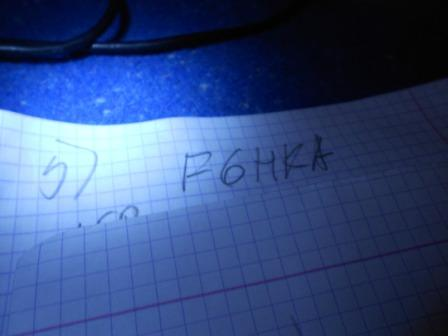 5) F6HKA